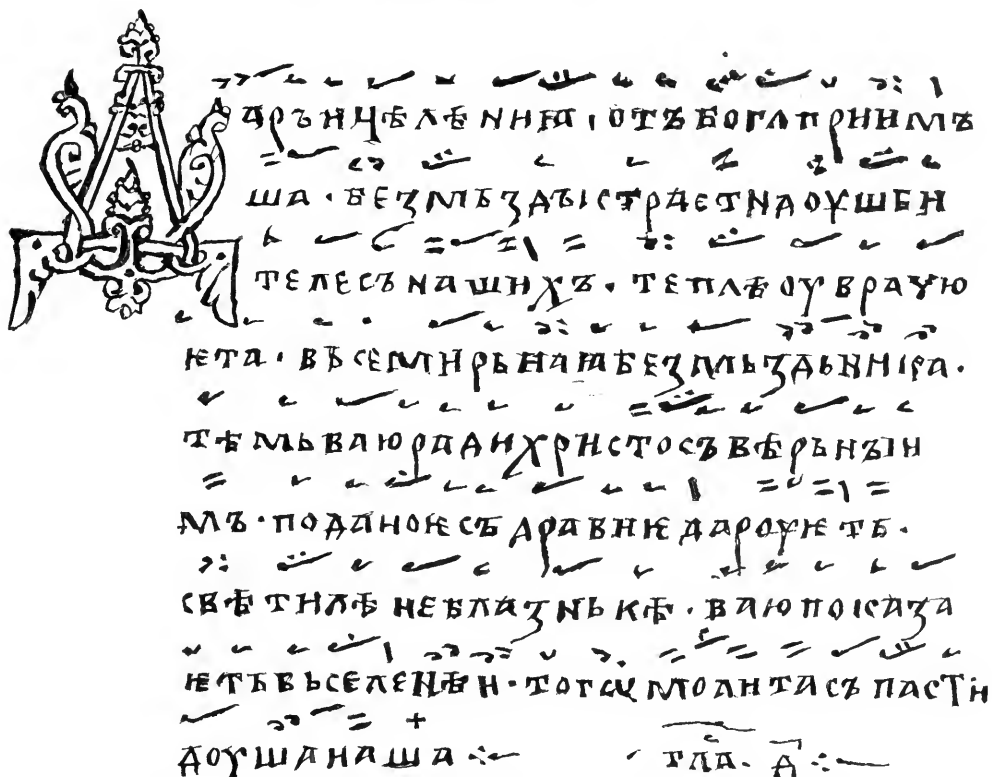 Дарꙑ ицѣлѣниꙗ · отъ бога приимъ
ша · безмьздьı страстı доушьи
телесъ нашихъ · теплѣ оуврачю
ѥта · вьсемирьнаꙗ безмьздьникa ·
тѣмь ваю ради христосъ вѣрьнꙑи
мъ · поданое съдравиѥ дароуѥть ·
свѣтилѣ неблазньнѣ · ваю показа
ѥть въселенѣи · того молита съпасти
доуша наша ⁘
гла · д ⁘